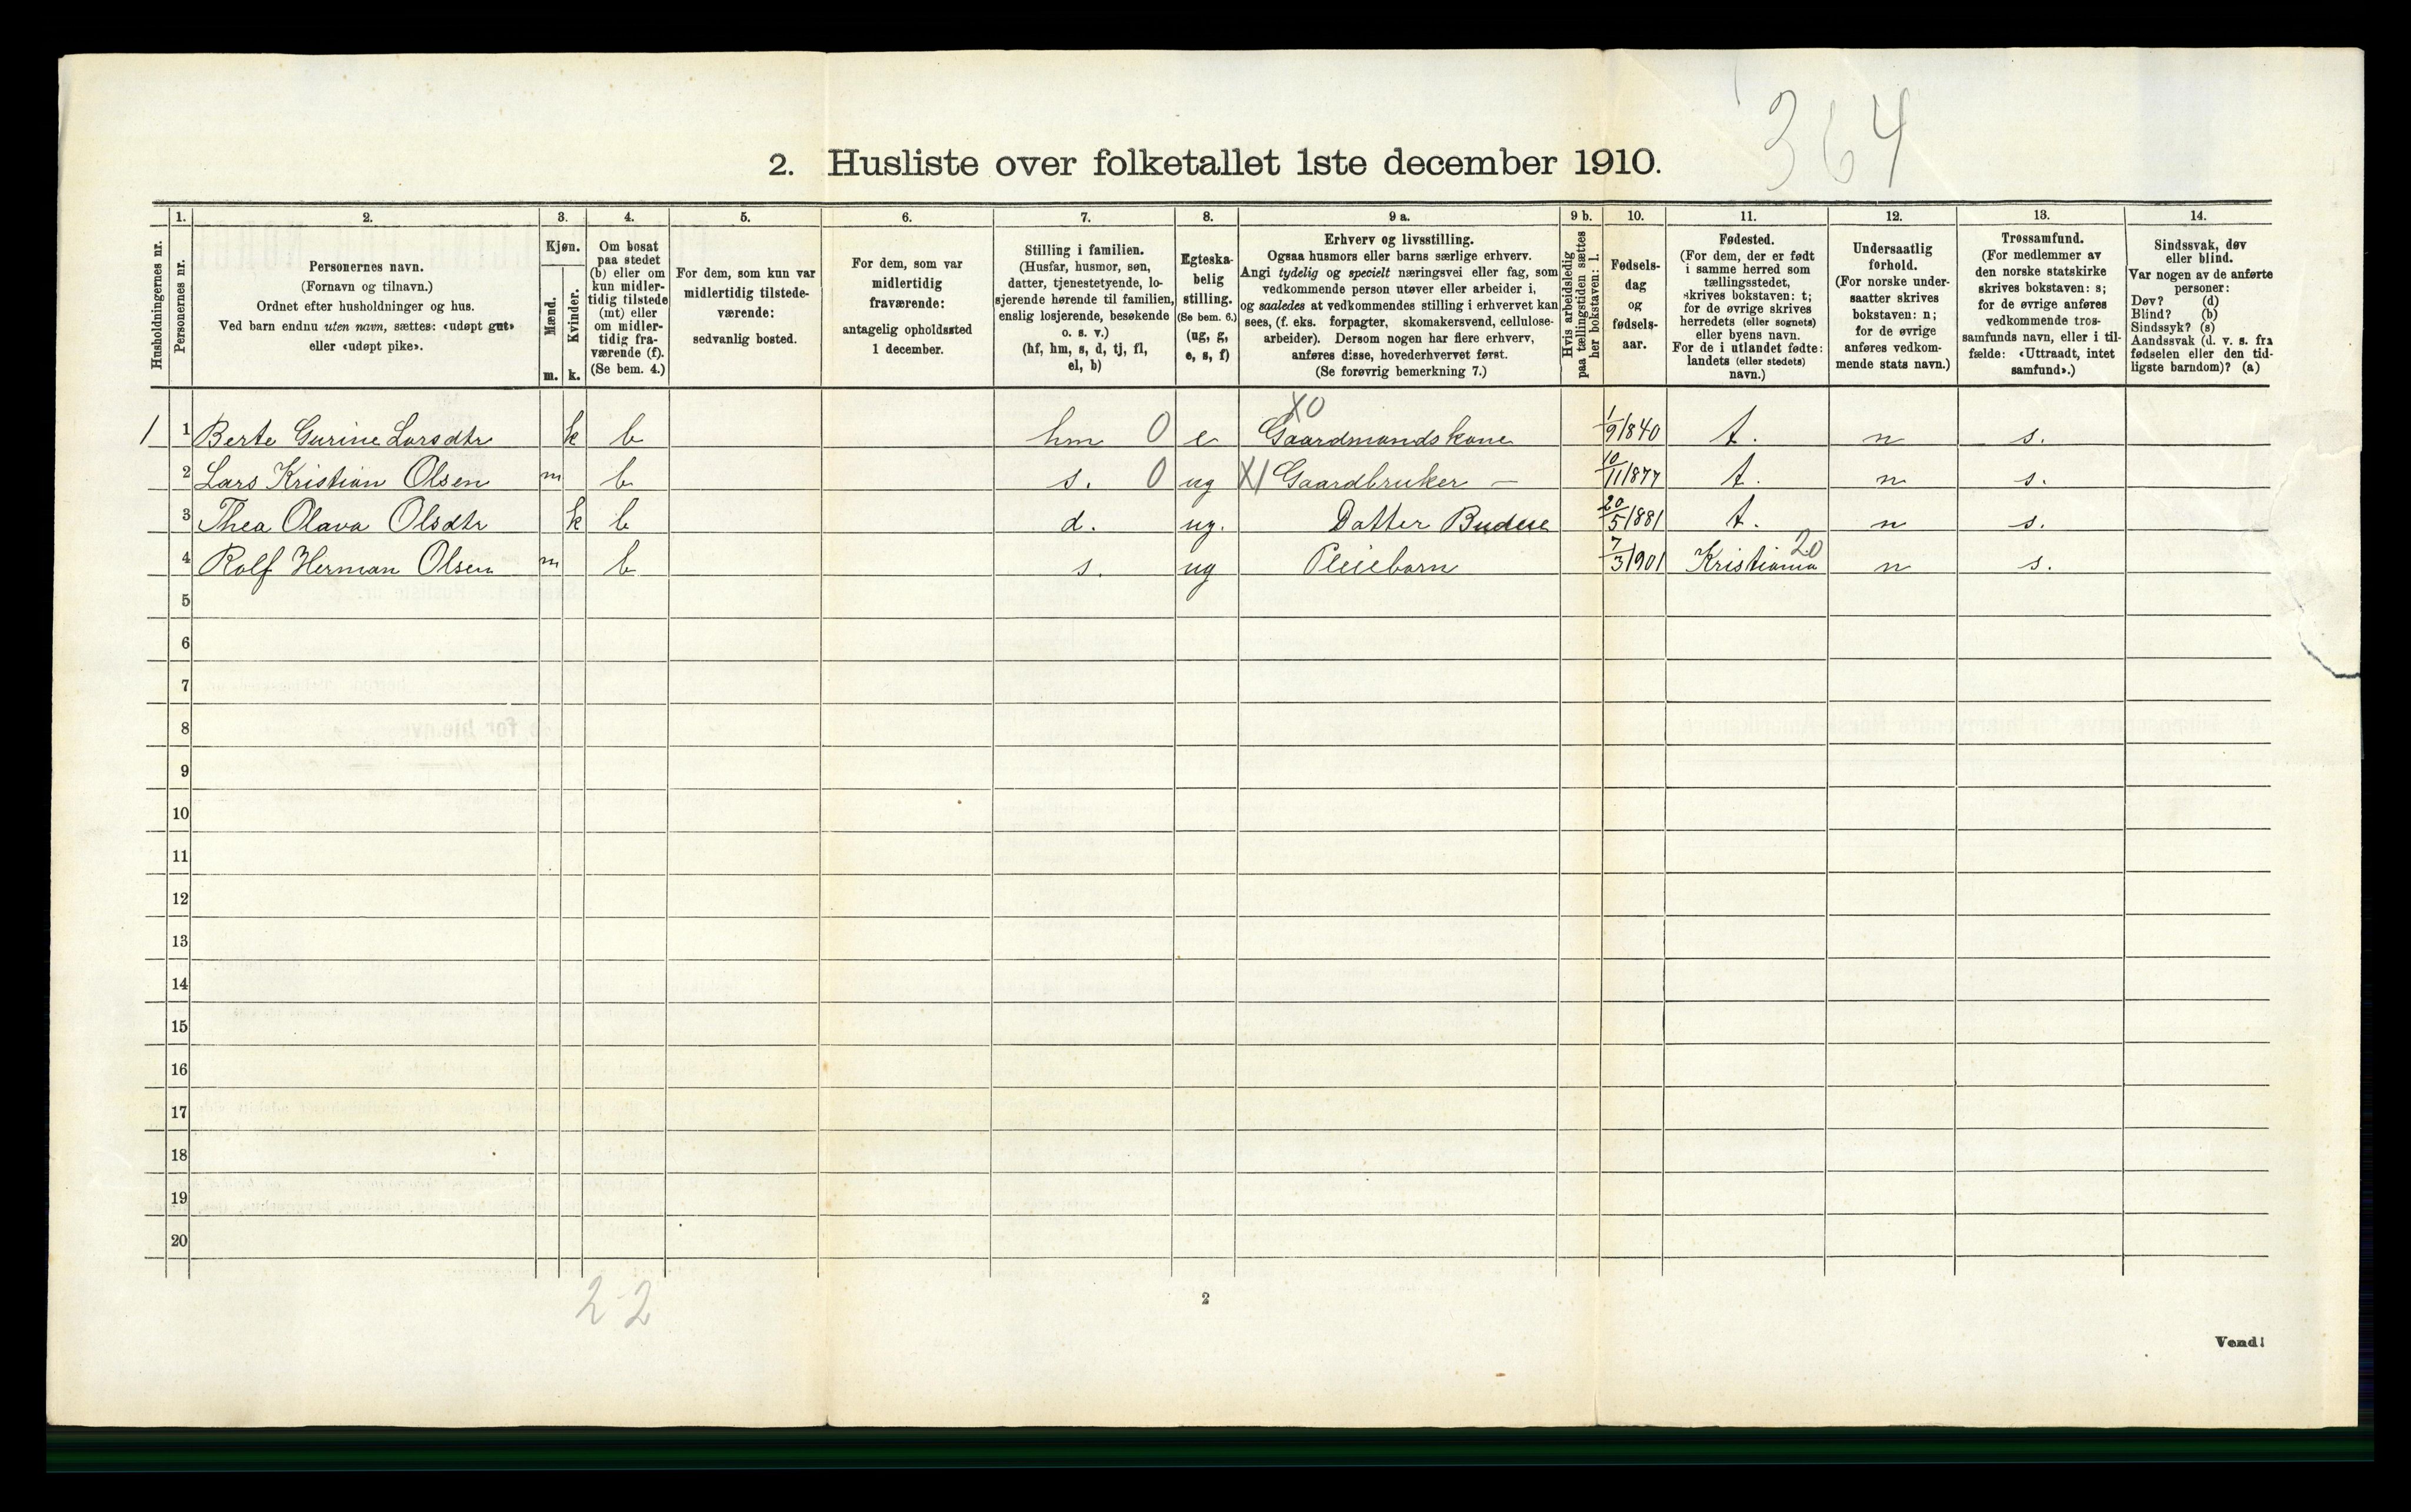 364
2. Husliste over folketallet 1ste december 1910.
Husholdningernes nr.
1.
Personernes nr.
2.
Personernes navn.
(Fornavn og tilnavn.)
Ordnet efter husholdninger og hus.
Ved barn endnu uten navn, sættes: «udøpt gut»
eller «udøpt pike».
3.
Kjøn.
Mænd.
m.
Kvinder.
k.
4.
Om bosat
paa stedet
(b) eller om
kun midler-
tidig tilstede
(mt) eller
om midler-
tidig fra-
værende (f).
(Se bem. 4.)
5.
For dem, som kun var
midlertidig tilstede-
værende:
sedvanlig bosted.
6.
For dem, som var
midlertidig
fraværende:
antagelig opholdssted
1 december.
7.
Stilling i familien.
(Husfar, husmor, søn,
datter, tjenestetyende, lo-
sjerende hørende til familien,
enslig losjerende, besøkende
o. s. v.)
(hf, hm, s, d, tj, fl,
el, b)
8.
Egteska-
belig
stilling.
(Se bem. 6.)
(ug, g,
e, s, f)
9 a.
Erhverv og livsstilling.
Ogsaa husmors eller barns særlige erhverv.
Angi tydelig og specielt næringsvei eller fag, som
vedkommende person utøver eller arbeider i,
og saaledes at vedkommendes stilling i erhvervet kan
sees, (f. eks. forpagter, skomakersvend, cellulose-
arbeider). Dersom nogen har flere erhverv,
anføres disse, hovederhvervet først.
(Se forøvrig bemerkning 7.)
9 b.
Hvis arbeidsledig
paa tællingstiden sættes
her bokstaven: l.
10.
Fødsels-
dag
og
fødsels-
aar.
11.
Fødested.
(For dem, der er født
i samme herred som
tællingsstedet,
skrives bokstaven: t;
for de øvrige skrives
herredets (eller sognets)
eller byens navn.
For de i utlandet fødte:
landets (eller stedets)
navn.)
12.
Undersaatlig
forhold.
(For norske under-
saatter skrives
bokstaven: n;
for de øvrige
anføres vedkom-
mende stats navn.)
13.
Trossamfund.
(For medlemmer av
den norske statskirke
skrives bokstaven: s;
for de øvrige anføres
vedkommende tros-
samfunds navn, eller i til-
fælde: «Uttraadt, intet
samfund».)
14.
Sindssvak, døv
eller blind.
Var nogen av de anførte
personer:
Døv? (d)
Blind? (b)
Sindssyk? (s)
Aandssvak (d. v. s. fra
fødselen eller den tid-
ligste barndom)? (a)
X0
1 1 Berte Gurine Larsdtr k b hm 0 e Gaardmandskone 1/9 1840 t. n s.
2 Lars Kristian Olsen m b s. 0 ug X1 Gaardbruker — 10/11 1877 t. n s.
3 Thea Olava Olsdtr k b d. ug. Datter Budeie 20/5 1881 t. n s.
20
4 Rolf Herman Olsen m b s. ug Pleiebarn 7/3 1901 Kristiania n s.
5
6
7
8
9
10
11
12
13
14
15
16
17
18
19
20
2-2
2
Vend!